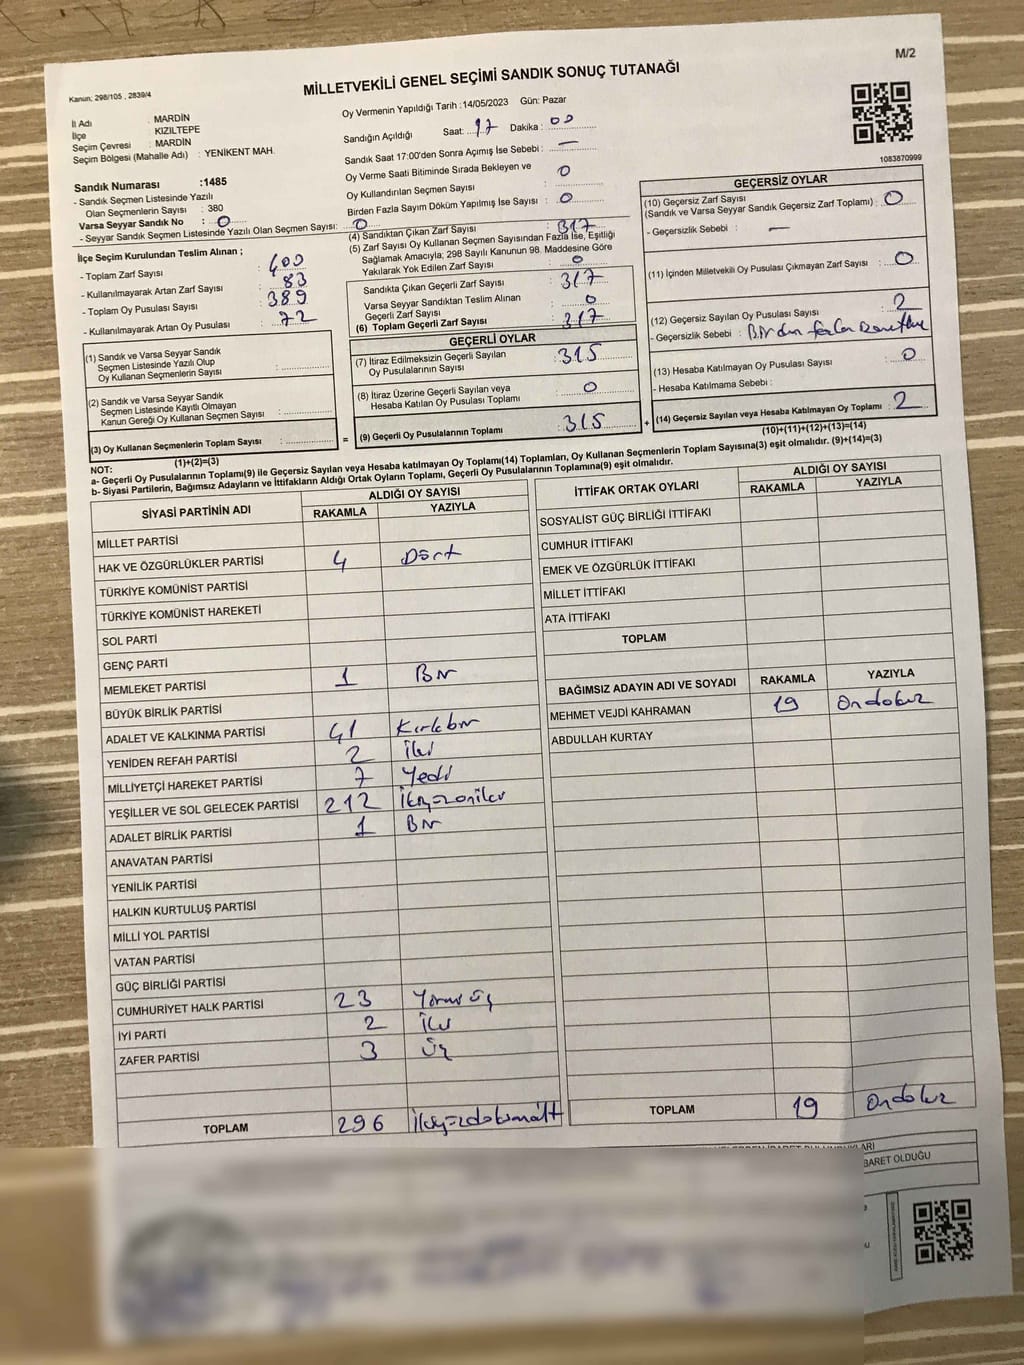 M/2
Kanun; 298/105 , 2839/4
MİLLETVEKİLİ GENEL SEÇİMİ SANDIK SONUÇ TUTANAĞI
İl Adı : MARDİN
İlçe : KIZILTEPE
Seçim Çevresi : MARDİN
Seçim Bölgesi (Mahalle Adı) : YENİKENT MAH.
Sandık Numarası :1485
- Sandık Seçmen Listesinde Yazılı
Olan Seçmenlerin Sayısı : 380
Varsa Seyyar Sandık No : 0
- Seyyar Sandık Seçmen Listesinde Yazılı Olan Seçmen Sayısı: 0
İlçe Seçim Kurulundan Teslim Alınan ;
- Toplam Zarf Sayısı : 400
- Kullanılmayarak Artan Zarf Sayısı : 83
- Toplam Oy Pusulası Sayısı : 389
- Kullanılmayarak Artan Oy Pusulası : 72
(1) Sandık ve Varsa Seyyar Sandık
Seçmen Listesinde Yazılı Olup
Oy Kullanan Seçmenlerin Sayısı :
(2) Sandık ve Varsa Seyyar Sandık
Seçmen Listesinde Kayıtlı Olmayan
Kanun Gereği Oy Kullanan Seçmen Sayısı :
(3) Oy Kullanan Seçmenlerin Toplam Sayısı :
(1)+(2)=(3)
Oy Vermenin Yapıldığı Tarih :14/05/2023 Gün: Pazar
Sandığın Açıldığı Saat: 17 Dakika : 00
Sandık Saat 17:00'den Sonra Açımış İse Sebebi : —
Oy Verme Saati Bitiminde Sırada Bekleyen ve
Oy Kullandırılan Seçmen Sayısı : 0
Birden Fazla Sayım Döküm Yapılmış İse Sayısı : 0
(4) Sandıktan Çıkan Zarf Sayısı : 317
(5) Zarf Sayısı Oy Kullanan Seçmen Sayısından Fazla İse, Eşitliği
Sağlamak Amacıyla; 298 Sayılı Kanunun 98. Maddesine Göre
Yakılarak Yok Edilen Zarf Sayısı : 0
Sandıkta Çıkan Geçerli Zarf Sayısı : 317
Varsa Seyyar Sandıktan Teslim Alınan
Geçerli Zarf Sayısı : 0
(6) Toplam Geçerli Zarf Sayısı : 317
GEÇERLİ OYLAR
(7) İtiraz Edilmeksizin Geçerli Sayılan
Oy Pusulalarının Sayısı : 315
(8) İtiraz Üzerine Geçerli Sayılan veya
Hesaba Katılan Oy Pusulası Toplamı : 0
= (9) Geçerli Oy Pusulalarının Toplamı : 315
1083870999
GEÇERSİZ OYLAR
(10) Geçersiz Zarf Sayısı
(Sandık ve Varsa Seyyar Sandık Geçersiz Zarf Toplamı) : 0
- Geçersizlik Sebebi : —
(11) İçinden Milletvekili Oy Pusulası Çıkmayan Zarf Sayısı : 0
(12) Geçersiz Sayılan Oy Pusulası Sayısı : 2
- Geçersizlik Sebebi : Birden fazla
(13) Hesaba Katılmayan Oy Pusulası Sayısı : 0
- Hesaba Katılmama Sebebi :
+ (14) Geçersiz Sayılan veya Hesaba Katılmayan Oy Toplamı : 2
(10)+(11)+(12)+(13)=(14)
NOT:
a- Geçerli Oy Pusulalarının Toplamı(9) ile Geçersiz Sayılan veya Hesaba katılmayan Oy Toplamı(14) Toplamları, Oy Kullanan Seçmenlerin Toplam Sayısına(3) eşit olmalıdır. (9)+(14)=(3)
b- Siyasi Partilerin, Bağımsız Adayların ve İttifakların Aldığı Ortak Oyların Toplamı, Geçerli Oy Pusulalarının Toplamına(9) eşit olmalıdır.
SİYASİ PARTİNİN ADI ALDIĞI OY SAYISI
RAKAMLA YAZIYLA
MİLLET PARTİSİ
HAK VE ÖZGÜRLÜKLER PARTİSİ 4 Dört
TÜRKİYE KOMÜNİST PARTİSİ
TÜRKİYE KOMÜNİST HAREKETİ
SOL PARTİ
GENÇ PARTİ
MEMLEKET PARTİSİ 1 Bir
BÜYÜK BİRLİK PARTİSİ
ADALET VE KALKINMA PARTİSİ 41 Kırkbir
YENİDEN REFAH PARTİSİ 2 İki
MİLLİYETÇİ HAREKET PARTİSİ 7 Yedi
YEŞİLLER VE SOL GELECEK PARTİSİ 212 İkiyüzoniki
ADALET BİRLİK PARTİSİ 1 Bir
ANAVATAN PARTİSİ
YENİLİK PARTİSİ
HALKIN KURTULUŞ PARTİSİ
MİLLİ YOL PARTİSİ
VATAN PARTİSİ
GÜÇ BİRLİĞİ PARTİSİ
CUMHURİYET HALK PARTİSİ 23 Yirmi üç
İYİ PARTİ 2 İki
ZAFER PARTİSİ 3 Üç
TOPLAM 296 İkiyüzdoksanaltı
İTTİFAK ORTAK OYLARI ALDIĞI OY SAYISI
RAKAMLA YAZIYLA
SOSYALİST GÜÇ BİRLİĞİ İTTİFAKI
CUMHUR İTTİFAKI
EMEK VE ÖZGÜRLÜK İTTİFAKI
MİLLET İTTİFAKI
ATA İTTİFAKI
TOPLAM
BAĞIMSIZ ADAYIN ADI VE SOYADI RAKAMLA YAZIYLA
MEHMET VEJDİ KAHRAMAN 19 Ondokuz
ABDULLAH KURTAY
TOPLAM 19 Ondokuz
BARET OLDUĞU